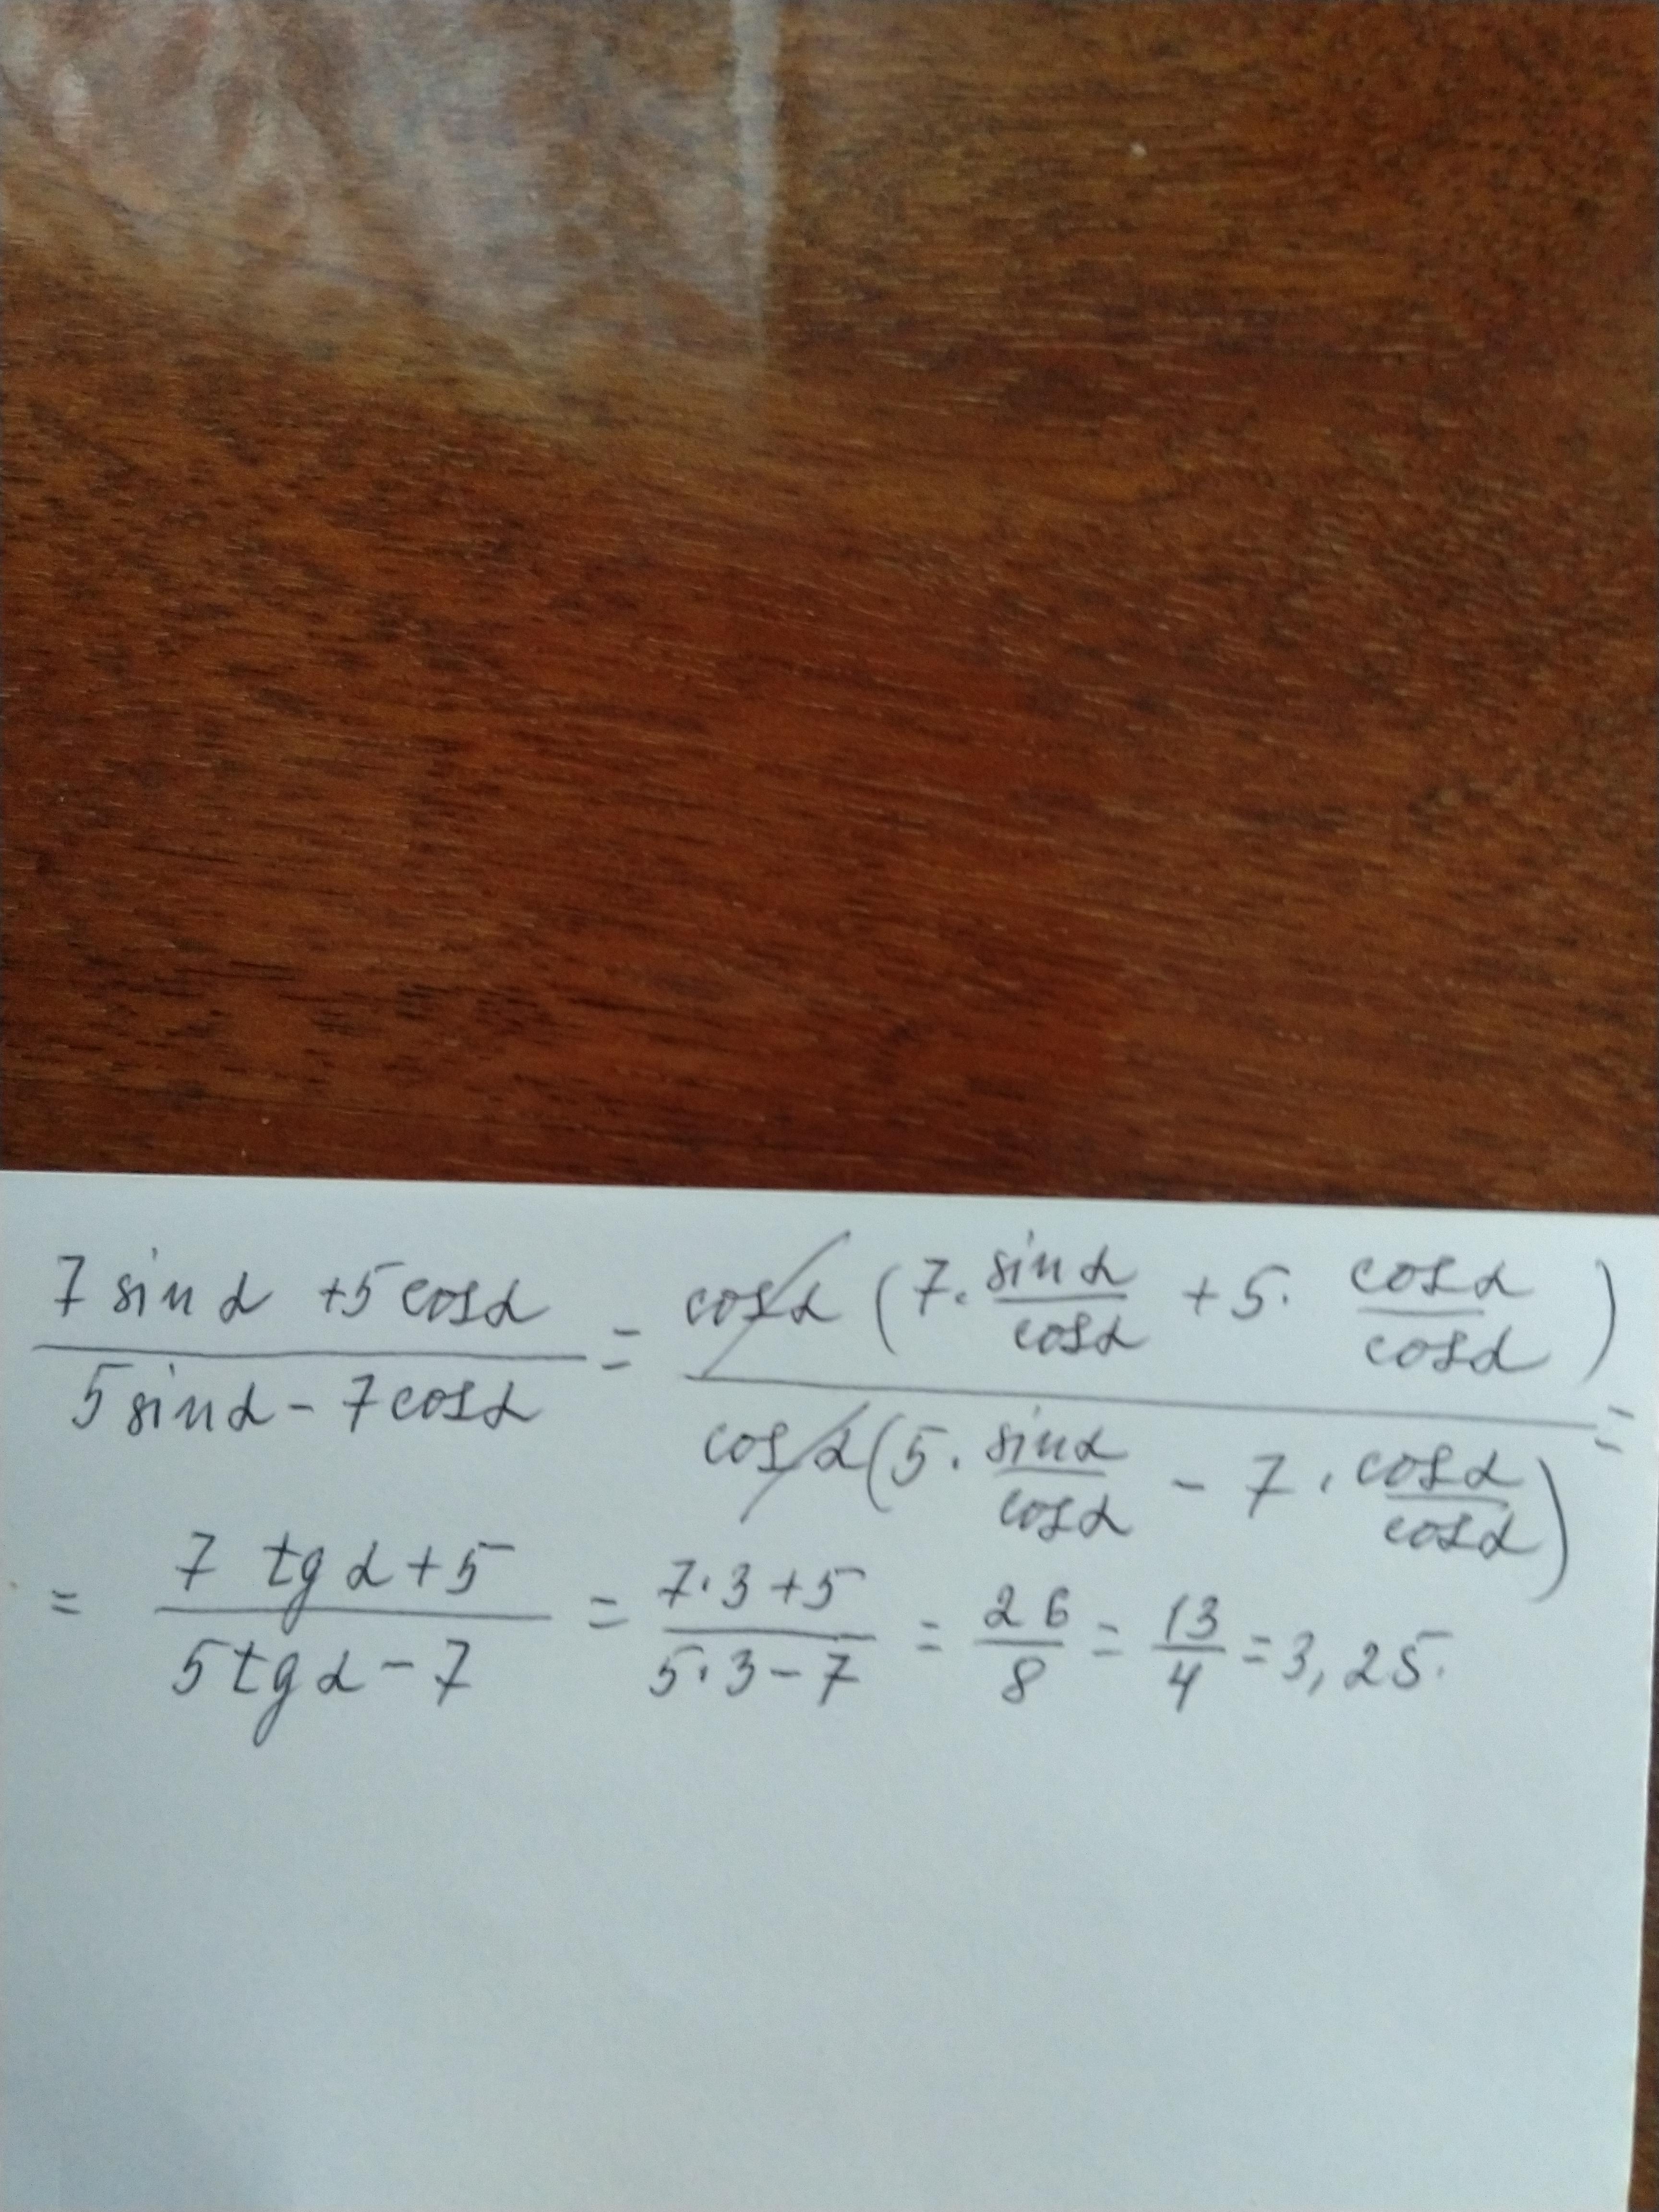 (7 sin α + 5 cos α) / (5 sin α - 7 cos α) = (cos α (7 · sin α / cos α + 5 · cos α / cos α)) / (cos α (5 · sin α / cos α - 7 · cos α / cos α)) =
= (7 tg α + 5) / (5 tg α - 7) = (7 · 3 + 5) / (5 · 3 - 7) = 26 / 8 = 13 / 4 = 3,25.